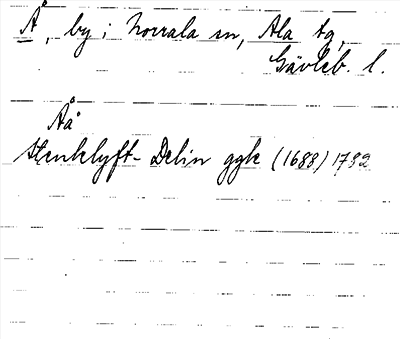 Å, by i Norrala sn, Ala tg,
Gävleb. l.
Åå
Stenklyft- Delin ggk (1688) 1782